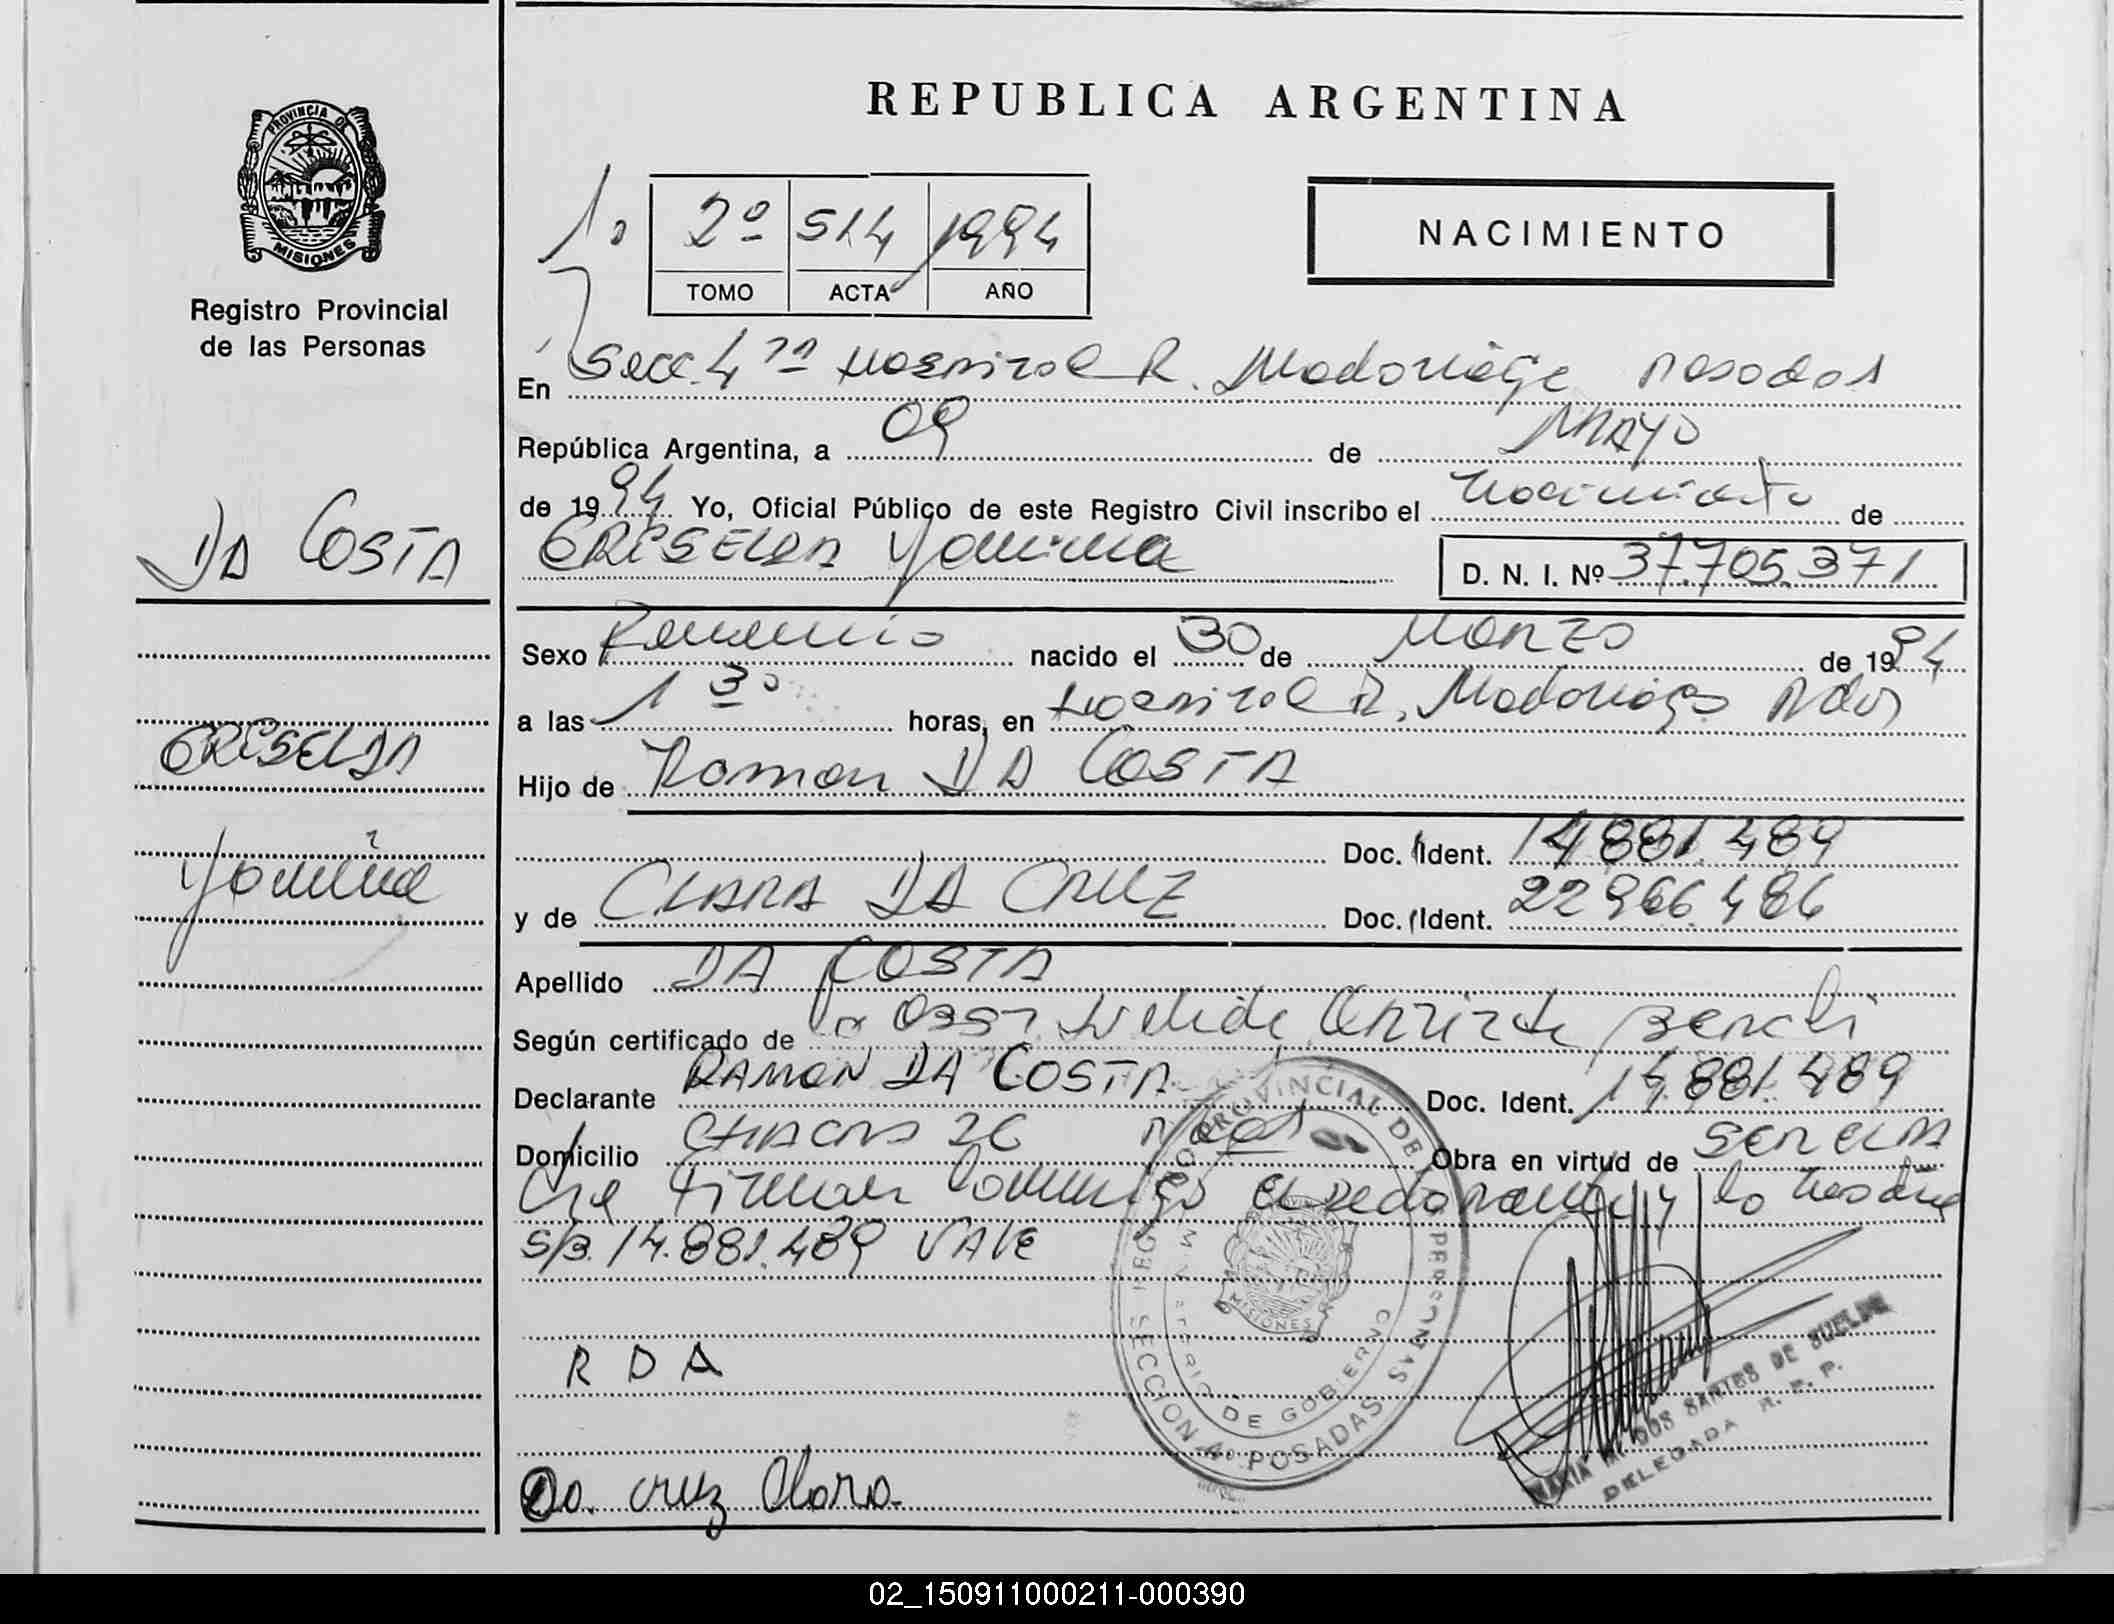 REPUBLICA ARGENTINA
PROVINCIA D
MISIONES
Registro Provincial
de las Personas
1o
2º 514 1994
TOMO ACTA AÑO
NACIMIENTO
En Secc. 4ta Hospital R. Madariaga Posadas
República Argentina, a 09 de MAYO
de 1994 Yo, Oficial Público de este Registro Civil inscribo el nacimiento de
GRISELDA Yanina D. N. I. Nº 37.705.371
DA COSTA
GRISELDA
Yanina
Sexo Femenino nacido el 30 de Marzo de 1994
a las 1 30 horas, en Hospital R. Madariaga Pdas
Hijo de Ramon DA COSTA
Doc. Ident. 14.881.489
y de CLARA DA CRUZ Doc. Ident. 22.966.486
Apellido DA COSTA
Según certificado de la Obst. Beatriz
Declarante RAMON DA COSTA Doc. Ident. 14.881.489
Domicilio CHACRA 26 Obra en virtud de SER EL PA
firman conmigo el declarante y la madre
S/B. 14.881.489 VALE
R D A
Da. cruz Clara.
REGISTRO PROVINCIAL DE LAS PERSONAS
MINISTERIO DE GOBIERNO
MISIONES
SECCION 4º POSADAS
MARIA DOS SANTOS DE
DELEGADA R. P. P.
02_150911000211-000390